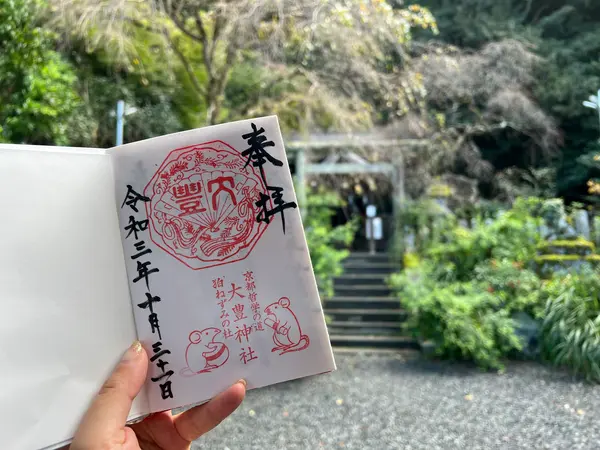 奉拝
大豐
京都哲学の道
大豊神社
狛ねずみの社
令和三年十月三十一日